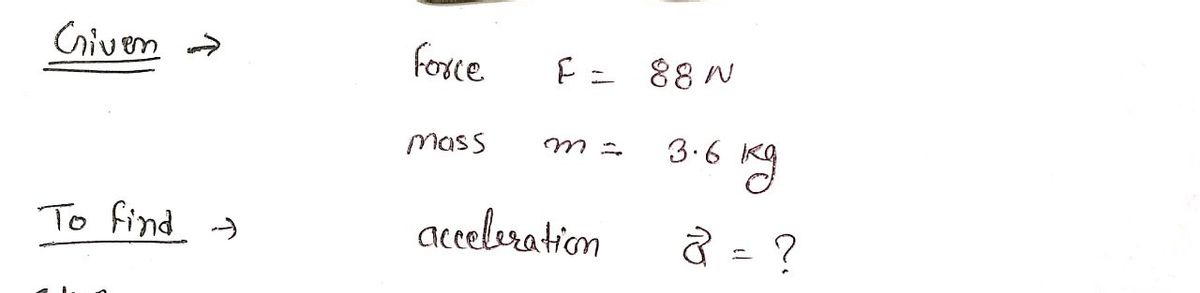 Given →
Force F = 88 N
mass m = 3.6 kg
To find →
acceleration a⃗ = ?